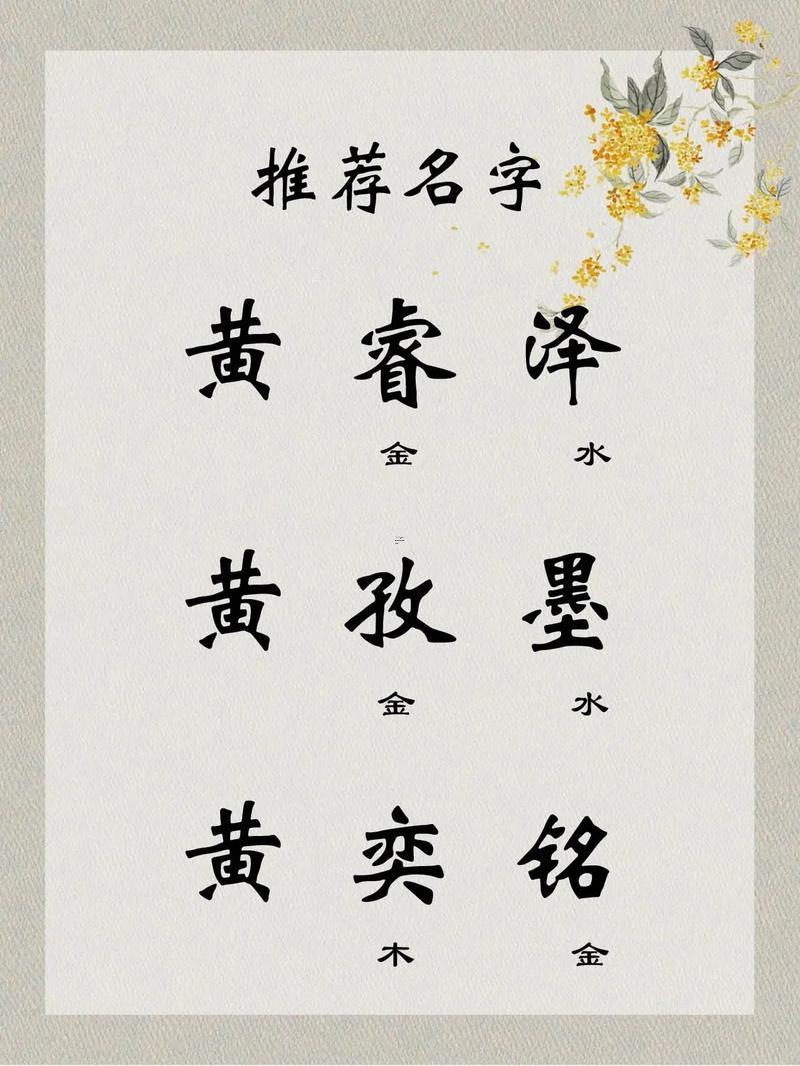 推荐名字
黄 睿 泽
金 水
黄 孜 墨
金 水
黄 奕 铭
木 金